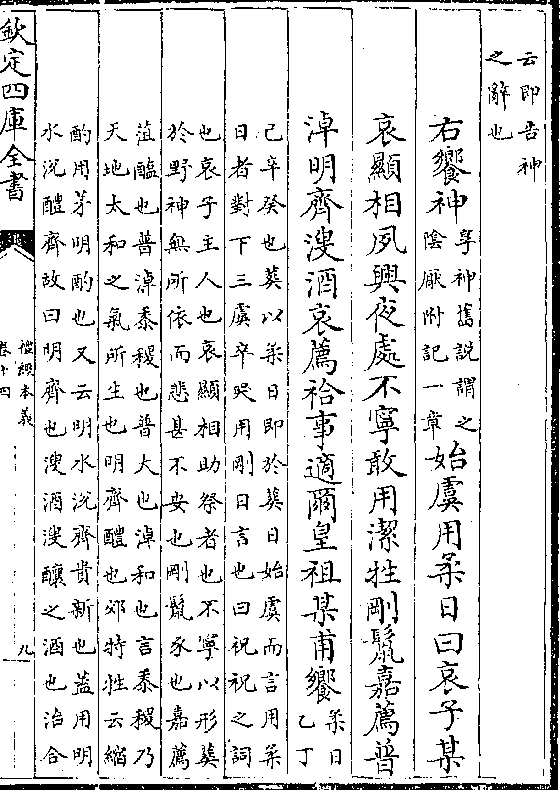 云即告神
之辭也
右饗神享神舊說謂之
陰厭附記一章始虞用柔日曰哀子某
哀顯相夙興夜處不寧敢用潔牲剛鬛嘉薦普
淖明齊溲酒哀薦祫事適爾皇祖某甫饗柔日
乙丁
己辛癸也葬以柔日即於葬日始虞而言用柔
日者對下三虞卒哭用剛日言也曰祝祝之詞
也哀子主人也哀顯相助祭者也不寧以形葬
於野神無所依而悲甚不安也剛鬛豕也嘉薦
菹醢也普淖黍稷也普大也淖和也言黍稷乃
天地太和之氣所生也明齊醴也郊特牲云縮
酌用茅明酌也又云明水涗齊貴新也蓋用明
水涗醴齊故曰明齊也溲酒溲釀之酒也治合
欽定四庫全書
禮經本義
卷十四
九